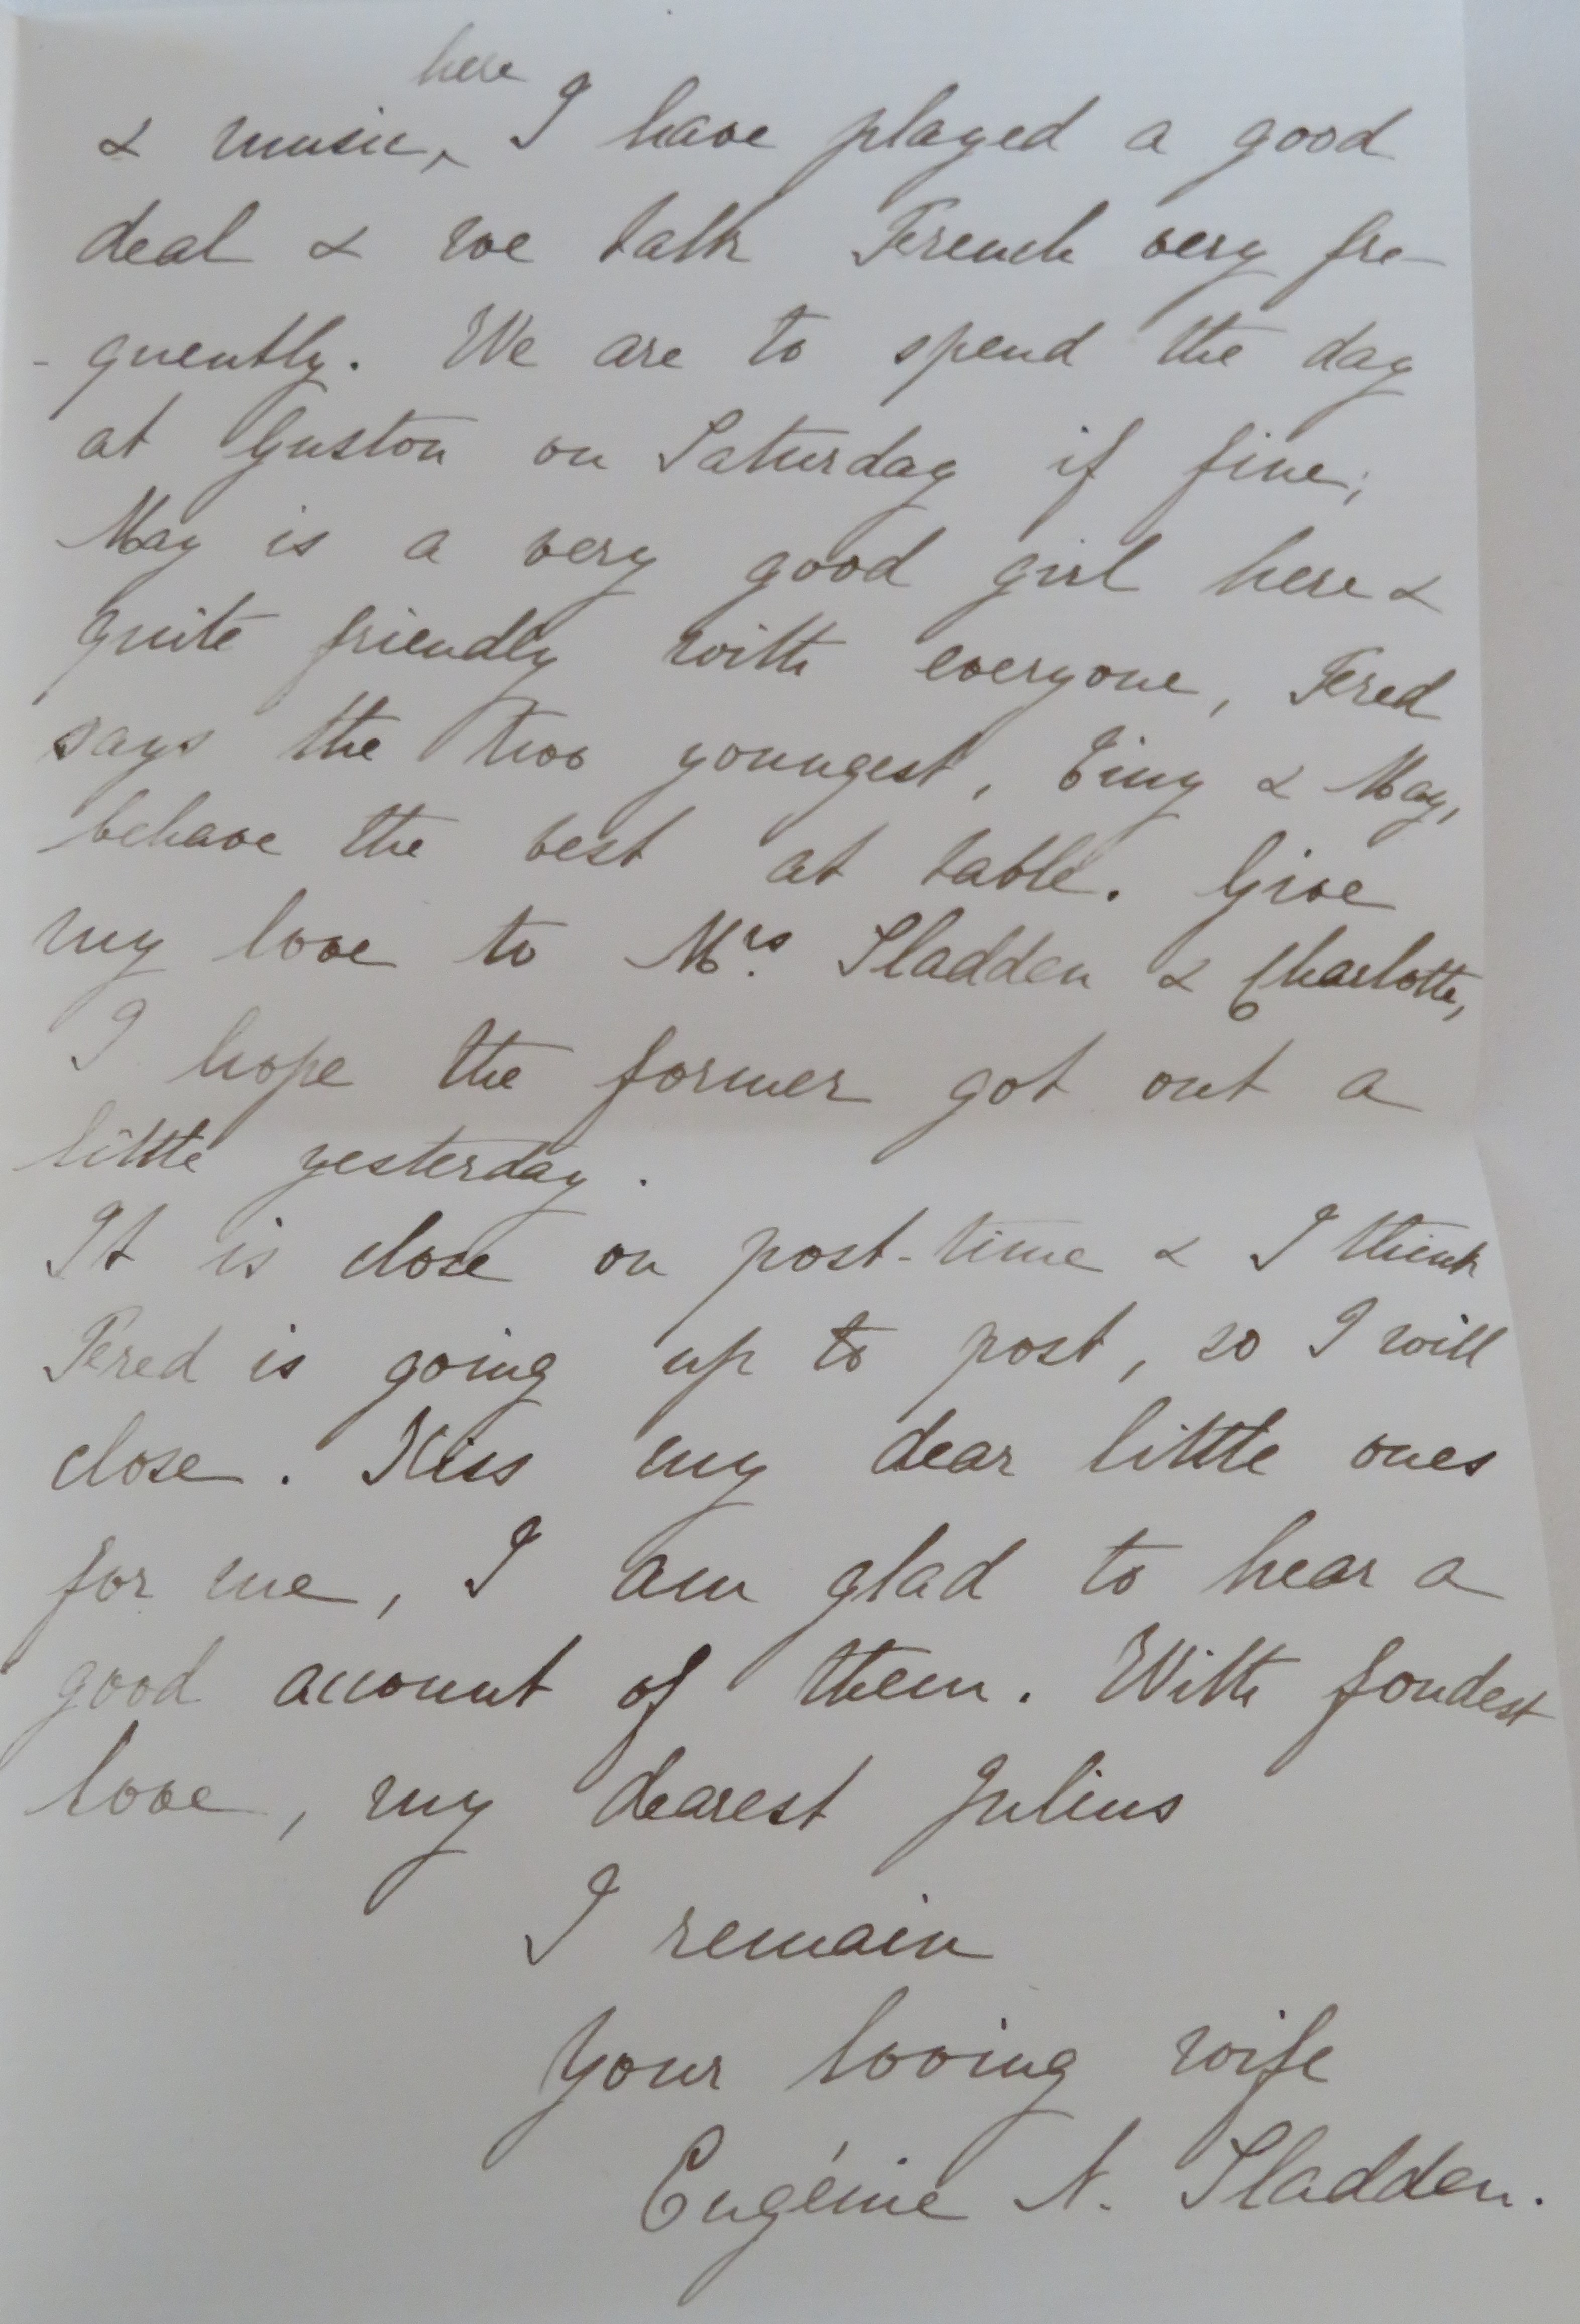 here
& music, I have played a good
deal & we talk French very fre-
- quently. We are to spend the day
at Guston on Saturday if fine;
May is a very good girl here &
quite friendly with everyone, Fred
says the two youngest, Tiny & May,
behave the best at table. Give
my love to Mrs. Sladden & Charlotte,
I hope the former got out a
little yesterday.
It is close on post-time & I think
Fred is going up to post, so I will
close. Kiss my dear little ones
for me, I am glad to hear a
good account of them. With fondest
love, my dearest Julius
I remain
Your loving wife
Eugénie N. Sladden.